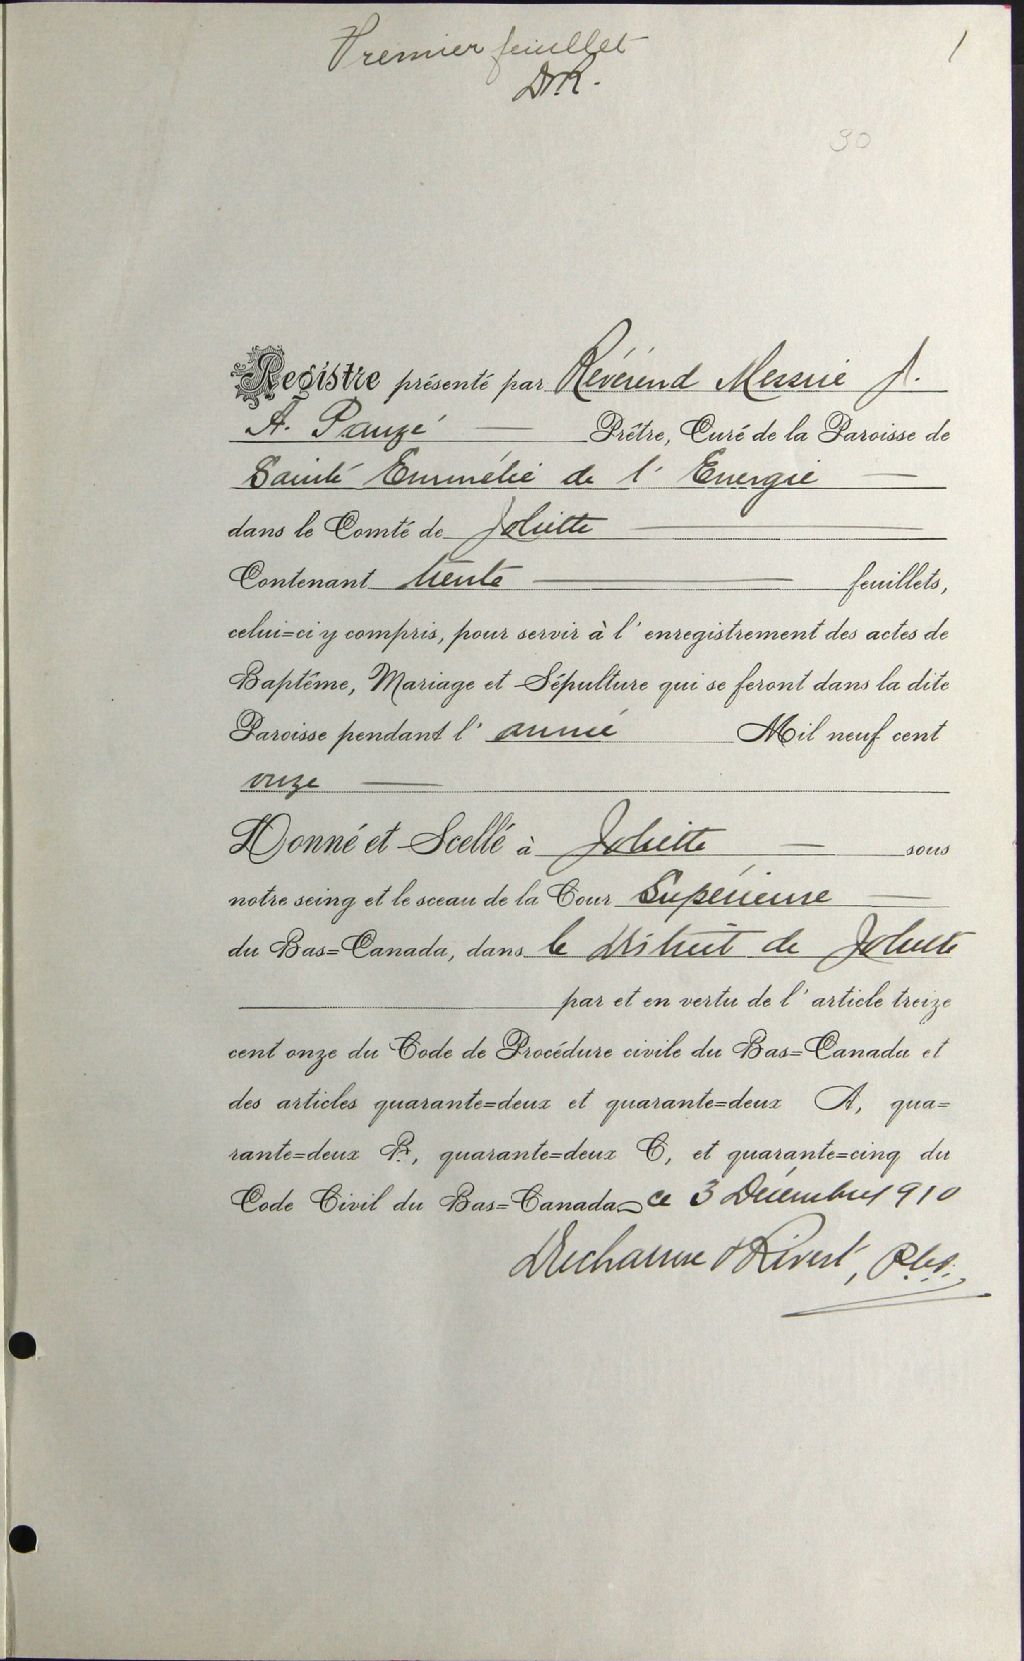 Premier feuillet
1
D&R.
30
Registre présenté par Révérend Messire J.
A. Pauzé Prêtre, Curé de la Paroisse de
Sainte Emmélie de l'Energie
dans le Comté de Joliette
Contenant trente feuillets,
celui=ci y compris, pour servir à l'enregistrement des actes de
Baptême, Mariage et Sépulture qui se feront dans la dite
Paroisse pendant l'année Mil neuf cent
onze
Donné et Scellé à Joliette sous
notre seing et le sceau de la Cour Supérieure
du Bas=Canada, dans le District de Joliette
par et en vertu de l'article treize
cent onze du Code de Procédure civile du Bas=Canada et
des articles quarante=deux et quarante=deux A, qua=
rante=deux B, quarante=deux C, et quarante=cinq du
Code Civil du Bas=Canada ce 3 Décembre 1910
Ducharme & Rivest,